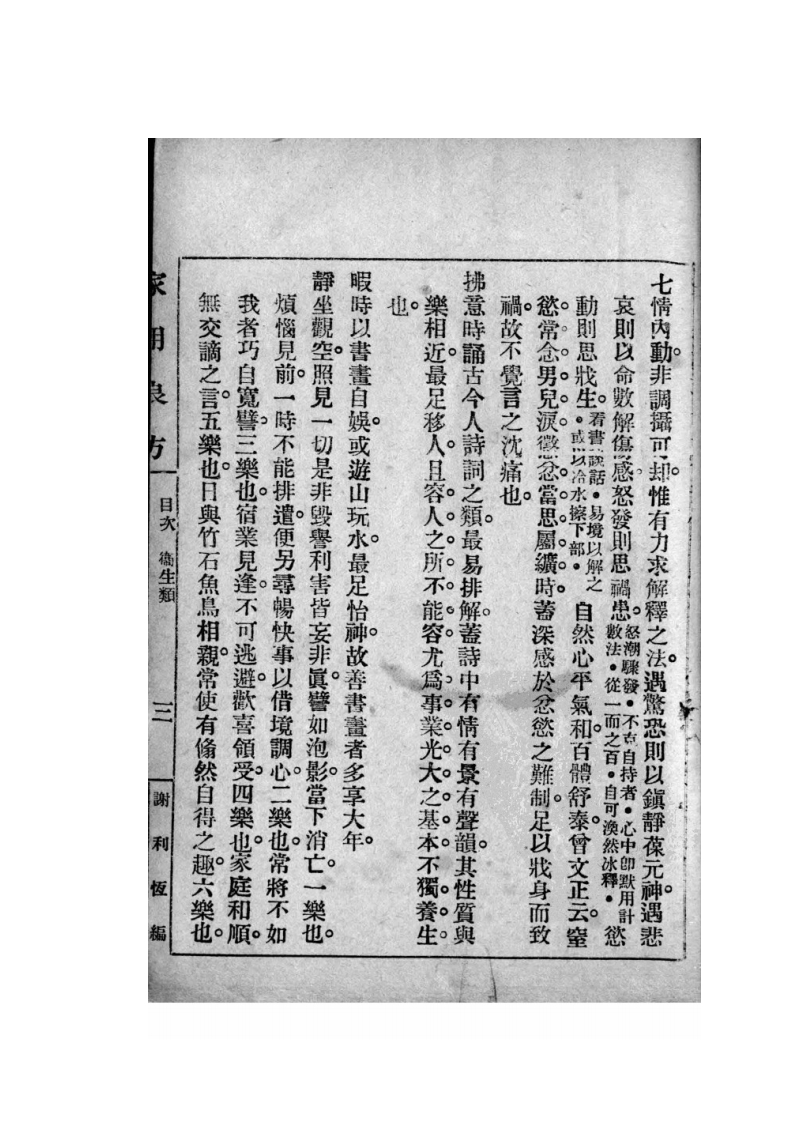 七情內動。非調攝可却。惟有力求解釋之法。遇驚恐則以鎭靜葆元神。遇悲
哀則以命數解傷感。怒發則思禍患。怒潮驟發•不克自持者•心中卽默用計數法•從一而之百•自可渙然冰釋•慾
動則思戕生。看書談話•易境以解之•或以冷水擦下部•自然心平氣和。百體舒泰。曾文正云。窒
慾常念男兒淚。懲忿當思屬纊時。蓄深感於忿慾之難制。足以戕身而致
禍。故不覺言之沈痛也。
拂意時誦古今人詩詞之類。最易排解。蓋詩中有情有景有聲韻。其性質與
樂相近。最足移人。且容人之所不能容。尤爲事業光大之基本。不獨養生
也。
暇時以書畫自娛。或遊山玩水。最足怡神。故善書畫者多享大年。
靜坐觀空。照見一切是非毀譽利害皆妄非眞。譬如泡影。當下消亡。一樂也。
煩惱見前。一時不能排遣。便另尋暢快事以借境調心。二樂也。常將不如
我者巧自寬譬。三樂也。宿業見逢。不可逃避。歡喜領受。四樂也。家庭和順。
無交謫之言。五樂也。日與竹石魚鳥相親。常使有翛然自得之趣。六樂也。
家用良方
目次 衞生類
三
謝利恆編